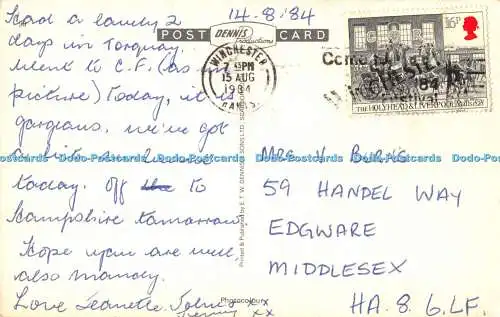 14.8.'84
Had a lovely 2
days in Torquay.
Went to C.F. (as in
picture) today, it is
gorgeous. We've got
a bit
today. Off to
Hampshire tomorrow
Hope you are well,
also Mandy.
Love Jeanette, John x x
xx
POST CARD
DENNIS
Productions
WINCHESTER
7 PM
15 AUG
1984
HANTS
16P
THE HOLYHEAD & LIVERPOOL
Printed & Published by E. T. W. DENNIS & SONS LTD.
Photocolour
MRS V. BURNS
59 HANDEL WAY
EDGWARE
MIDDLESEX
HA. 8 6LF.
Dodo-Postcards Dodo-Postcards Dodo-Postcards Dodo-Postcards Dodo-Postcards